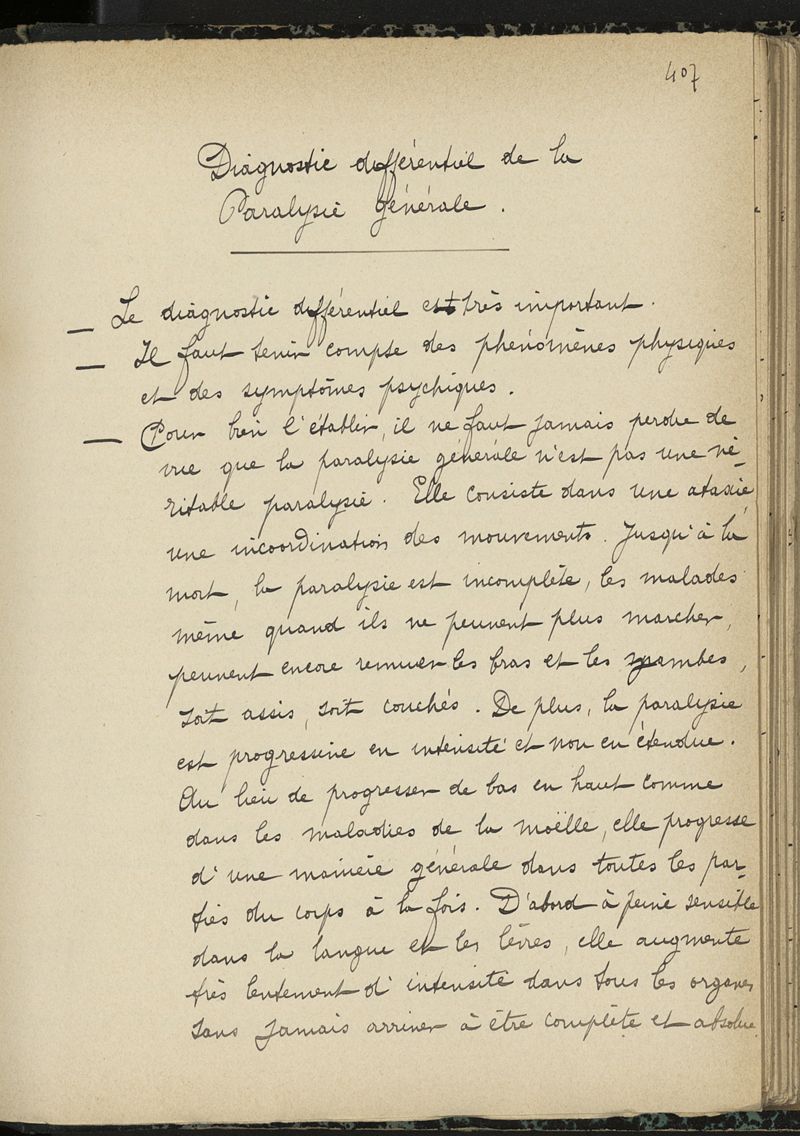 407
Diagnostic différentiel de la
Paralysie générale.
— Le diagnostic différentiel est très important.
— Il faut tenir compte des phénomènes physiques
et des symptômes psychiques.
— Pour bien l'établir, il ne faut jamais perdre de
vue que la paralysie générale n'est pas une vé-
ritable paralysie. Elle consiste dans une ataxie,
une incoordination des mouvements. Jusqu'à la
mort, la paralysie est incomplète, les malades
même quand ils ne peuvent plus marcher,
peuvent encore remuer les bras et les jambes,
soit assis, soit couchés. De plus, la paralysie
est progressive en intensité et non en étendue.
Au lieu de progresser de bas en haut comme
dans les maladies de la moëlle, elle progresse
d'une manière générale dans toutes les par-
ties du corps à la fois. D'abord à peine sensible
dans la langue et les lèvres, elle augmente
très lentement d'intensité dans tous les organes
sans jamais arriver à être complète et absolue.